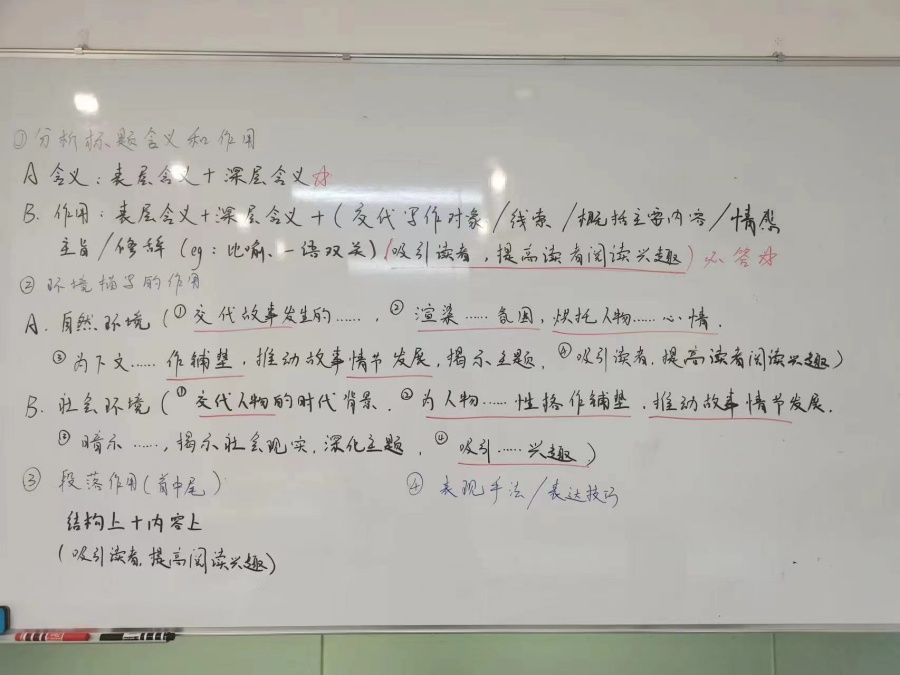 ①分析标题含义和作用
A 含义：表层含义+深层含义☆
B. 作用：表层含义+深层含义+（交代写作对象/线索/概括主要内容/情感
主旨/修辞（eg：比喻、一语双关）（吸引读者，提高读者阅读兴趣）必答☆
②环境描写的作用
A. 自然环境（①交代故事发生的……，②渲染……氛围，烘托人物……心情.
③为下文……作铺垫，推动故事情节发展，揭示主题，④吸引读者，提高读者阅读兴趣）
B. 社会环境（①交代人物的时代背景，②为人物……性格作铺垫，推动故事情节发展.
③暗示……，揭示社会现实，深化主题，④吸引……兴趣）
③ 段落作用（首中尾）
④ 表现手法/表达技巧
结构上+内容上
（吸引读者，提高阅读兴趣）